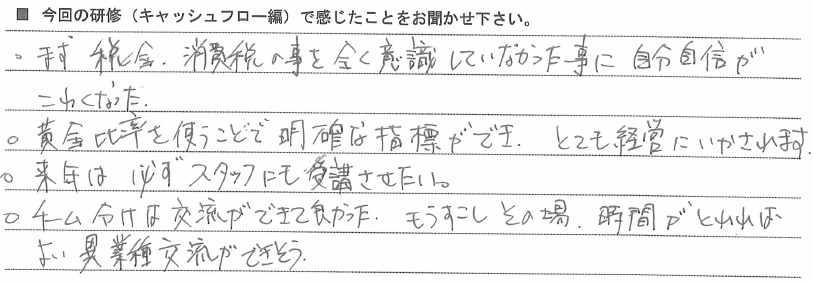 ■ 今回の研修（キャッシュフロー編）で感じたことをお聞かせ下さい。
○ まず 税金、消費税の事を全く意識していなかった事に 自分自信が
こわくなった.
○ 黄金比率を使うことで 明確な指標ができ. とても経営にいかされます.
○ 来年は 必ずスタッフにも受講させたい。
○ チーム分けは交流ができて良かった. もうすこし その場、時間がとれれば
よい異業種交流ができそう.